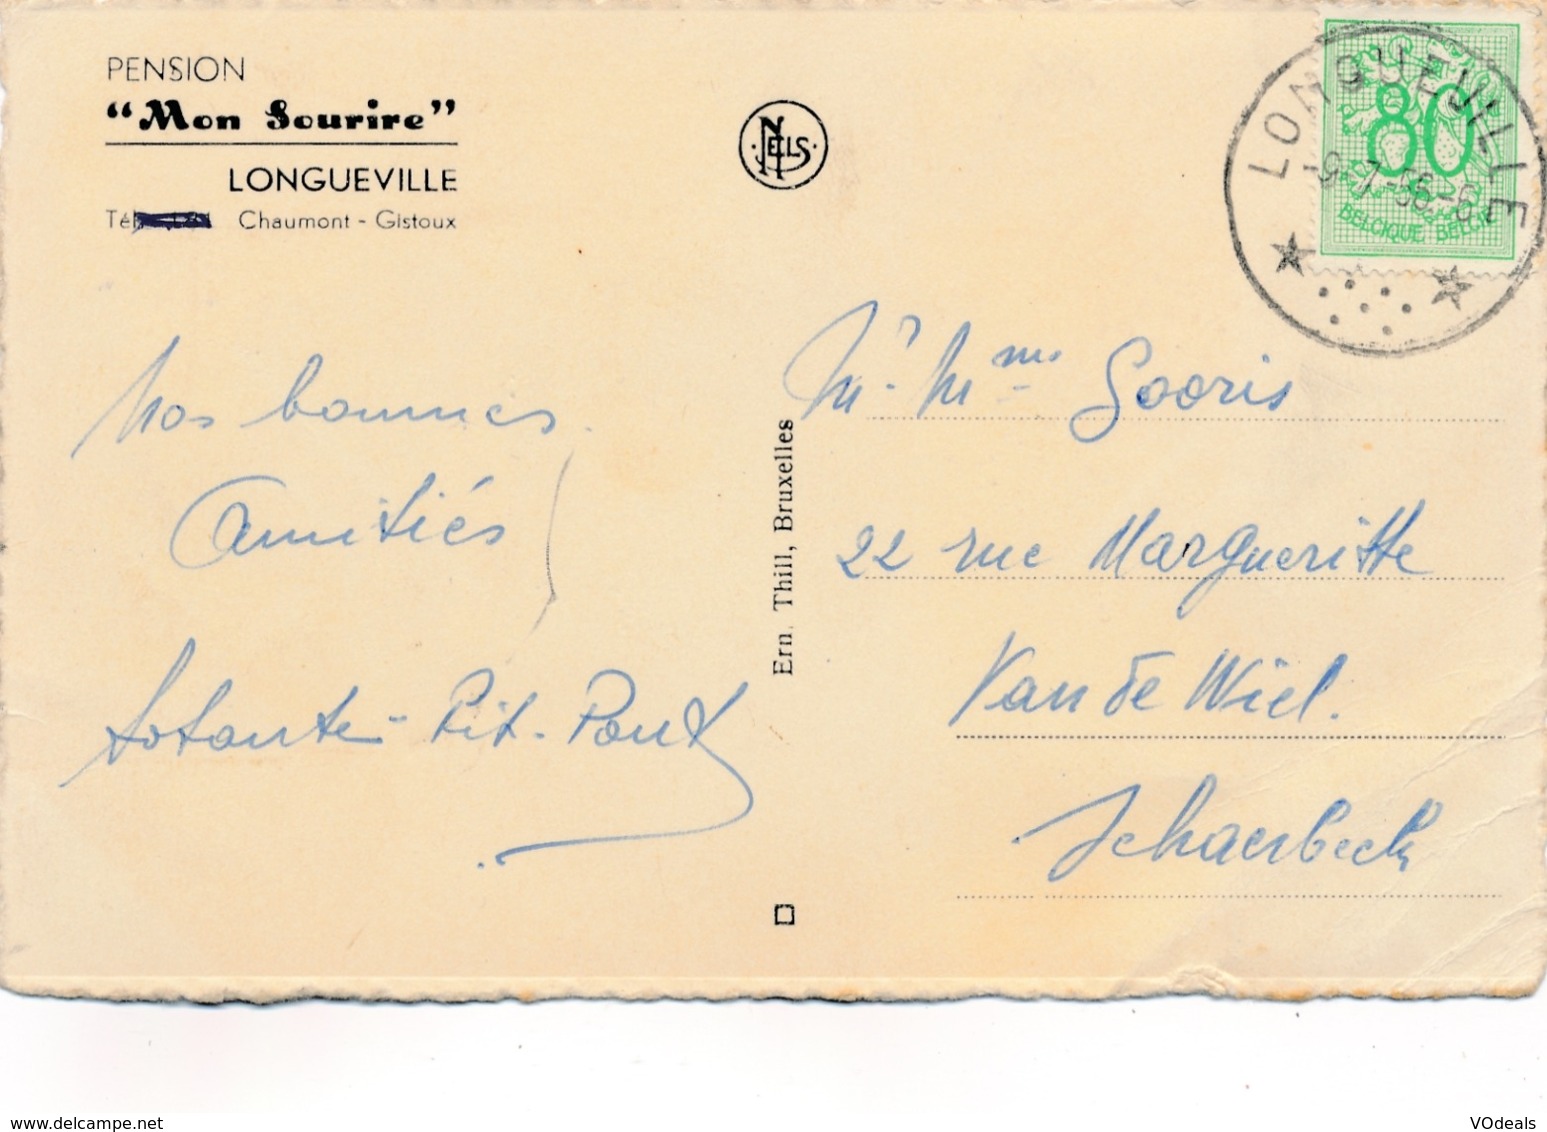 PENSION
"Mon Sourire"
LONGUEVILLE
Tél. Chaumont - Gistoux
NELS
LONGUEVILLE
-9-7-56-
80
BELGIQUE BELGIE
Nos bonnes
Amitiés
Pit. Paul
Ern. Thill, Bruxelles
Mr. Mme Gooris
22 rue Margueritte
Van de Wiel.
Schaerbeek
www.delcampe.net
VOdeals